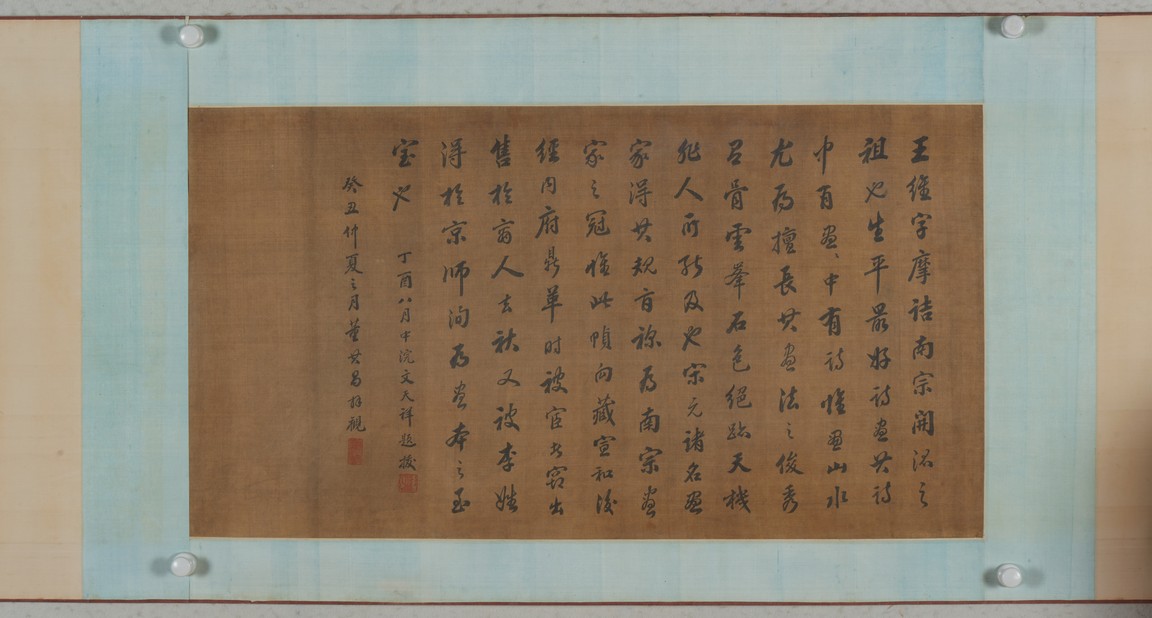 王維字摩詰南宗開派之
祖也生平最好詩畫其詩
中有畫畫中有詩惟畫山水
尤為擅長其畫法之俊秀
石骨雲峯石色絕跡天機
非人所能及也宋元諸名畫
家得其規盲称為南宗畫
家之冠惟此幀向藏宣和後
經內府鼎革時被宦者竊出
售於商人去秋又被李姓
得於京師洵為畫本之至
宝也
丁酉八月中浣文天祥題拔
癸丑仲夏之月董其昌拜觀